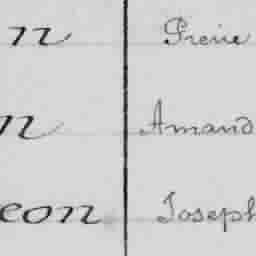 n Pierre
n Amand
eon Joseph